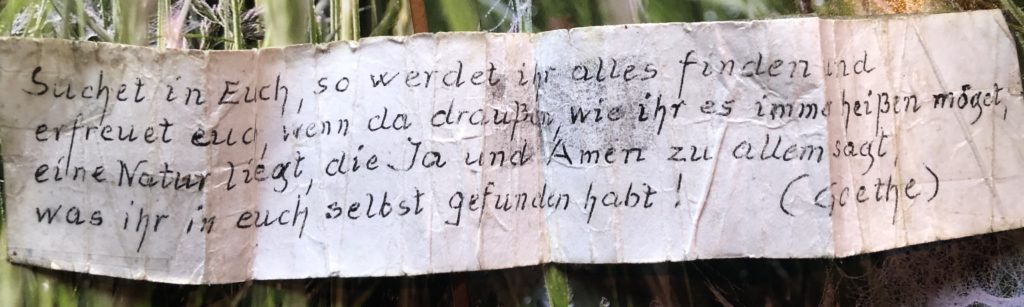 Suchet in Euch, so werdet ihr alles finden und
erfreuet euch, wenn da draußen, wie ihr es immer heißen möget,
eine Natur liegt, die Ja und Amen zu allem sagt,
was ihr in euch selbst gefunden habt! (Goethe)